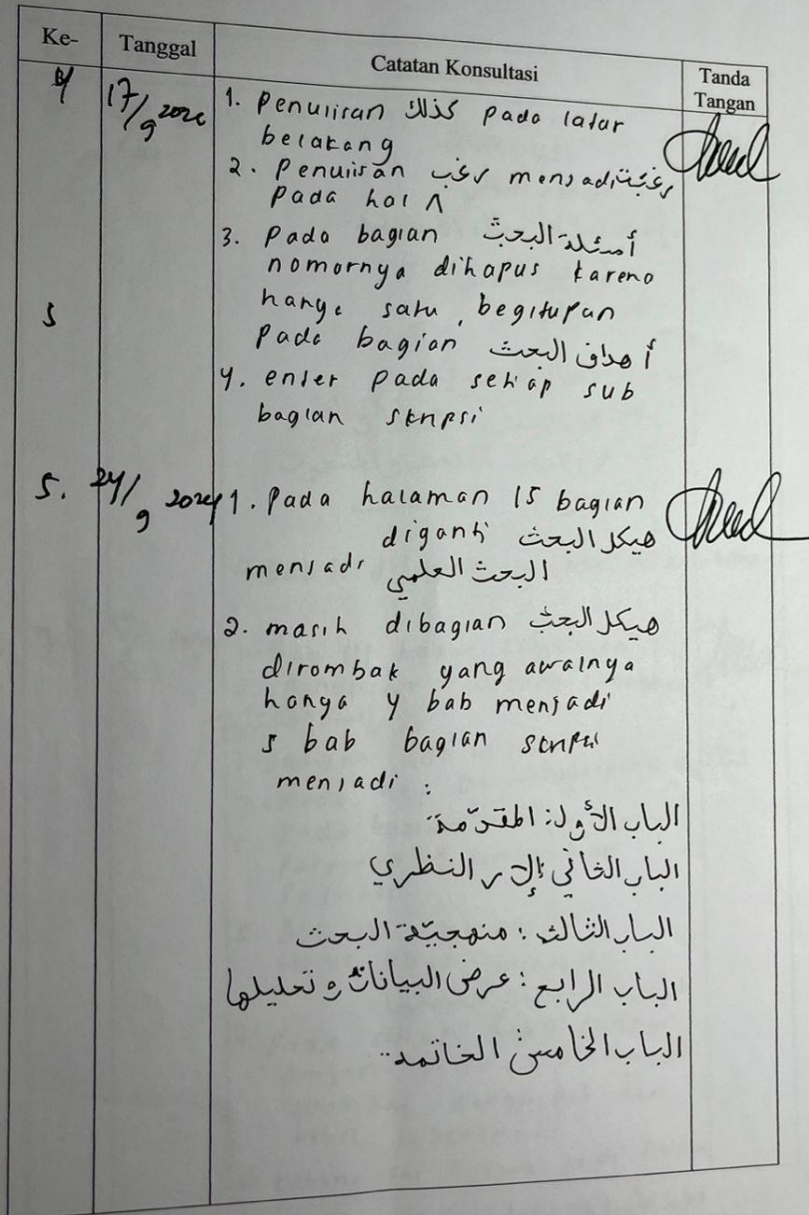 Ke- Tanggal Catatan Konsultasi Tanda Tangan
4 17/9 2024 1. Penulisan كذلك pada latar
belakang
2. Penulisan رغب menjadi رغبة
pada hal ٨
3. Pada bagian أسئلة البحث
nomornya dihapus karena
hanya satu, begitupun
5
pada bagian أهداف البحث
4. enter pada setiap sub
bagian skripsi
5. 24/9 2024 1. Pada halaman 15 bagian
هيكل البحث diganti
menjadi البحث العلمي
2. masih dibagian هيكل البحث
dirombak yang awalnya
hanya 4 bab menjadi
5 bab bagian skripsi
menjadi :
الباب الأول: المقدّمة
الباب الثاني: النظري
الباب الثالث: منهجيّة البحث
الباب الرابع: عرض البيانات و تحليلها
الباب الخامس: الخاتمة